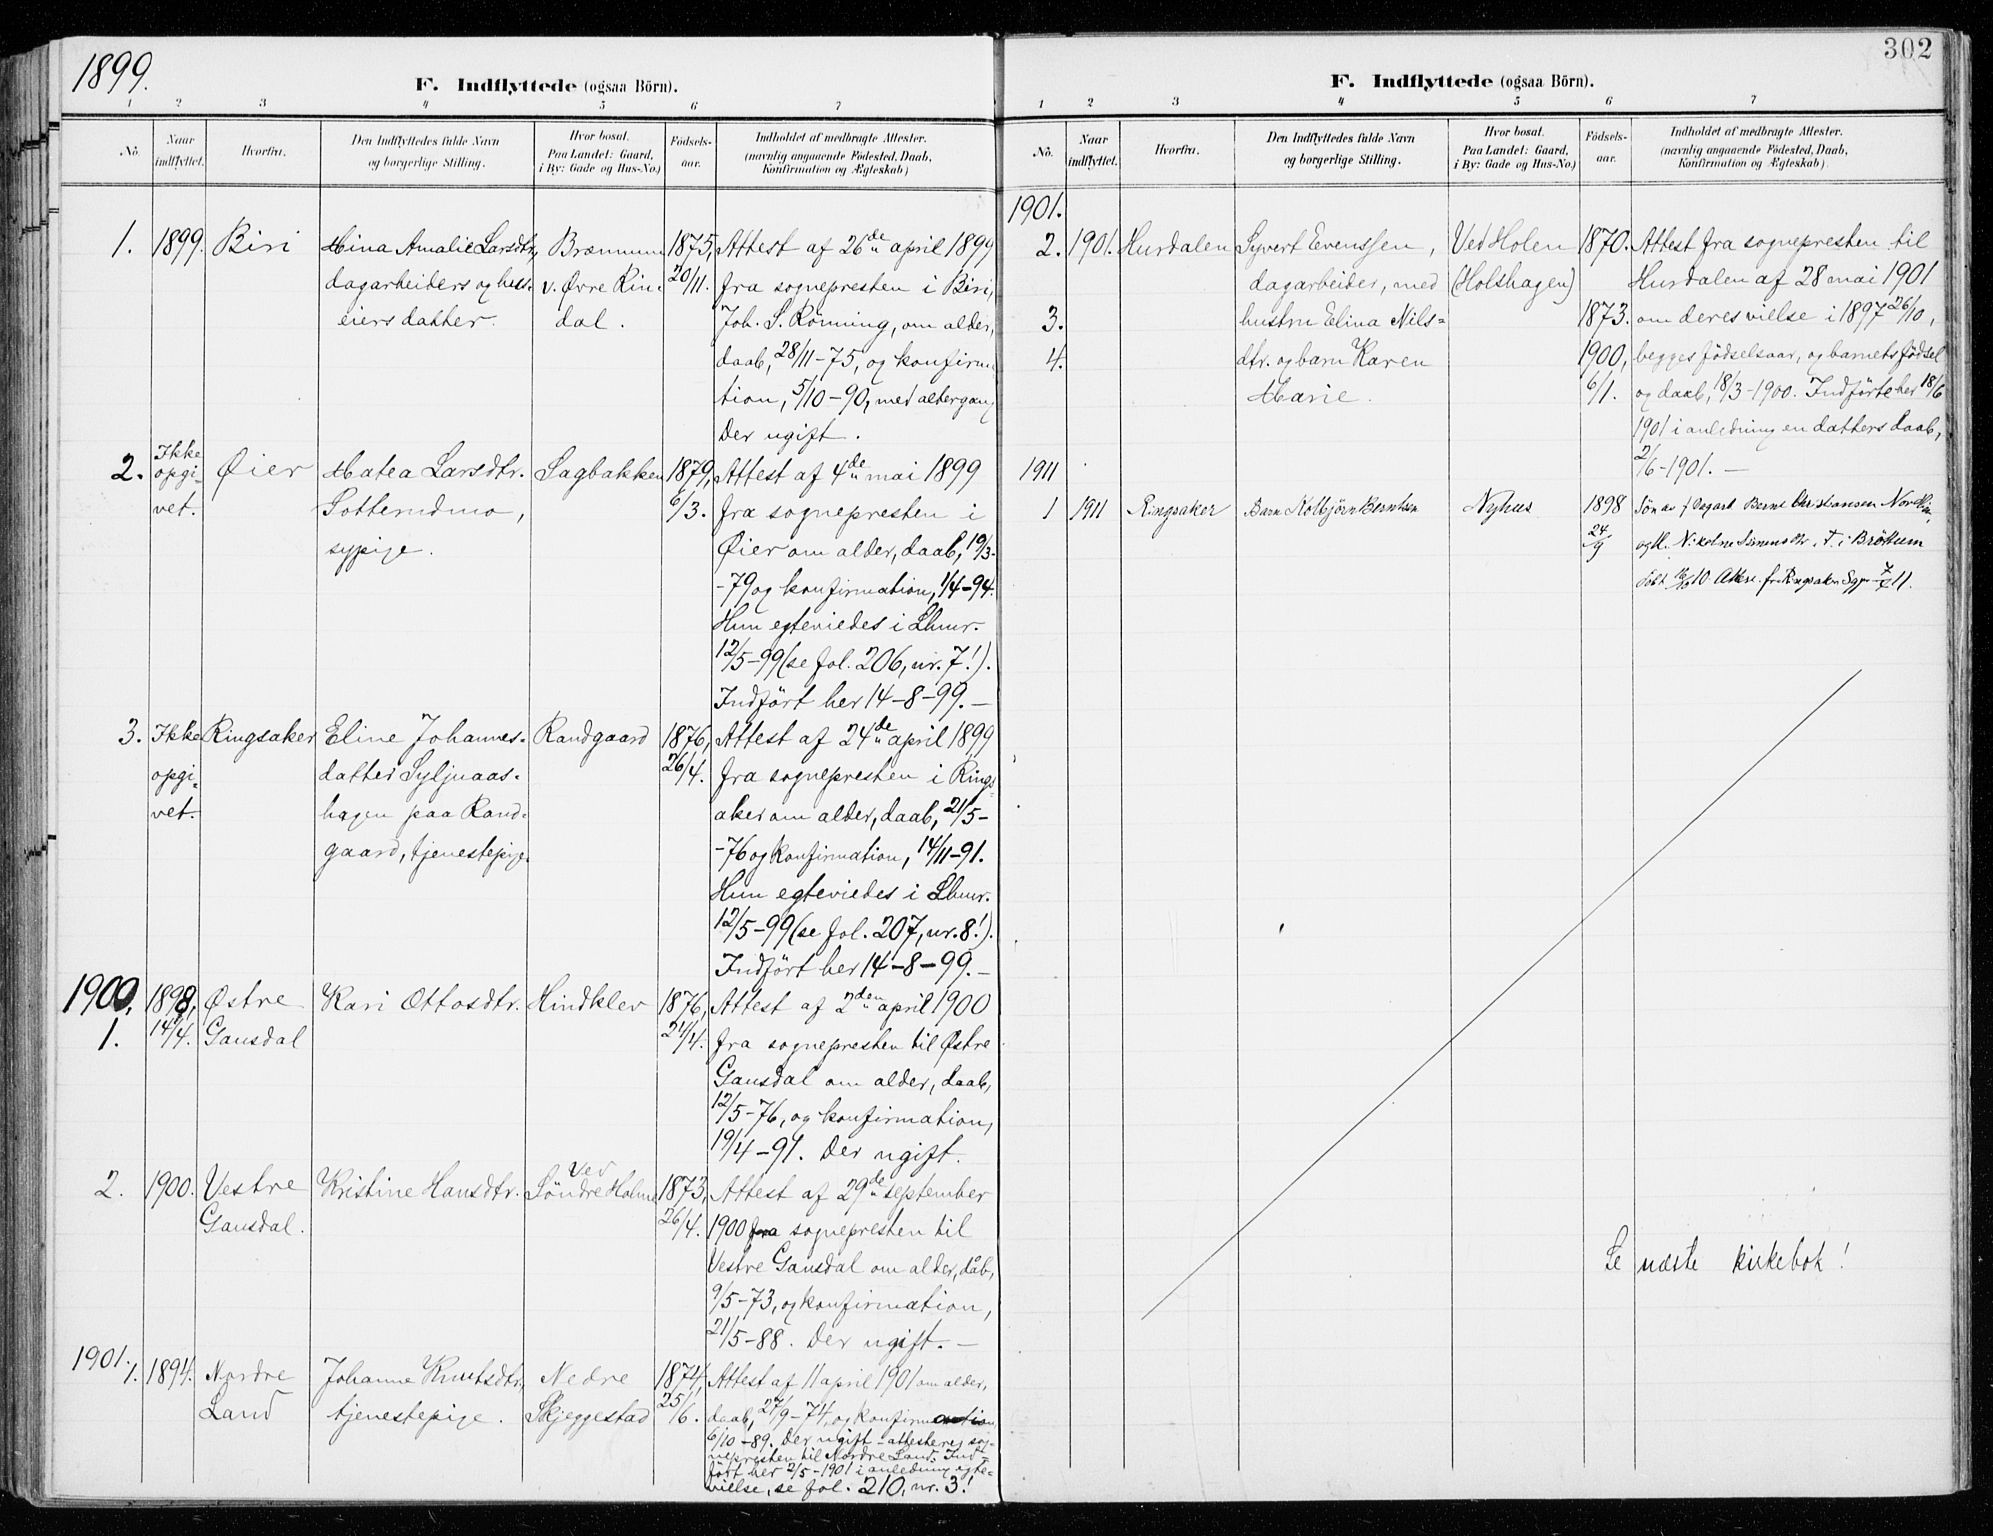 1899.
F. Indflyttede (ogsaa Börn).
1 2 3 4 5 6 7
No. Naar indflyttet. Hvorfra. Den Indflyttedes fulde Navn og borgerlige Stilling. Hvor bosat. Paa Landet: Gaard, i By: Gade og Hus-No.) Födsels-aar. Indholdet af medbragte Attester. (navnlig angaaende Födested, Daab, Konfirmation og Ægteskab)
1. 1899. Biri Mina Amalie Larsdtr., 1875, Attest af 26de april 1899
dagarbeiders og hus- v. Øvre Rin- 20/11. fra sognepresten i Biri,
eiers datter. dal. Joh. S. Rønning, om alder,
daab, 28/11-75, og konfirma
tion, 5/10-90, med altergang
Der ugift.
2. Ikke Øier Matea Larsdtr. Sagbakken 1879, Attest af 4de mai 1899
opgi- 6/3. fra sognepresten i
vet. sypige. Øier om alder, daab, 19/3-
-79 og konfirmation, 1/4-94.
Hun egteviedes i Lhmr.
12/5-99 (se fol. 206, nr. 7!).
Indført her 14-8-99.-
3. Ikke Ringsaker Eline Johannes- Randgaard 1876, Attest af 24de april 1899
opgi- datter Syljuaas- 26/4. fra sognepresten i Rings-
vet. hagen paa Rand- aker om alder, daab, 21/5-
gaard, tjenestepige. -76 og konfirmation, 14/11-91.
Hun egteviedes i Lhmr.
12/5-99 (se fol. 207, nr. 8!).
Indført her 14-8-99.-
1900.
1. 1898, Østre Kari Ottosdtr. Hindklev 1876, Attest af 2den april 1900
14/4. Gausdal 21/4. fra sognepresten til Østre
Gausdal om alder, daab,
12/5-76, og konfirmation,
19/4-91. Der ugift.
2. 1900. Vestre Kristine Hansdtr. Ved Söndre Holme 1873, Attest af 29de september
Gausdal. 26/4. 1900 fra sognepresten til
Vestre Gausdal om alder, dåb,
9/5-73, og konfirmation,
21/5-88. Der ugift.-
1901.
1. 1894. Nordre Johanne Knutsdtr., Nedre 1874, Attest af 11 april 1901 om alder,
Land tjenestepige. Skjeggestad 25/6. daab, 27/9-74, og konfirmation
6/10-89. Der ugift - attesterer sog-
nepresten til Nordre Land. Ind-
ført her 2/5-1901 i anledning egte-
vielse, se fol. 210, nr. 3!
302
F. Indflyttede (ogsaa Börn).
1 2 3 4 5 6 7
No. Naar indflyttet. Hvorfra. Den Indflyttedes fulde Navn og borgerlige Stilling. Hvor bosat. Paa Landet: Gaard, i By: Gade og Hus-No) Födsels-aar. Indholdet af medbragte Attester. (navnlig angaaende Födested, Daab, Konfirmation og Ægteskab).
1901.
2. 1901. Hurdalen Syvert Evenssen, Ved Holen 1870. Attest fra sognepresten til
dagarbeider, med (Holshagen) Hurdalen af 28 mai 1901
3. hustru Elina Nils- 1873. om deres vielse i 1897 26/10,
4. dtr. og barn Karen 1900, begges fødselsaar, og barnets fødsel
Marie. 6/1. og daab, 18/3-1900. Indførte her 18/6
1901 i anledning en datters daab,
2/6-1901.-
1911
1 1911 Ringsaker Barn Kolbjørn Berntsen Nyhus 1898 Søn av Bernt Christiansen
24/9 i Brøttum
11.
Se næste kirkebok!